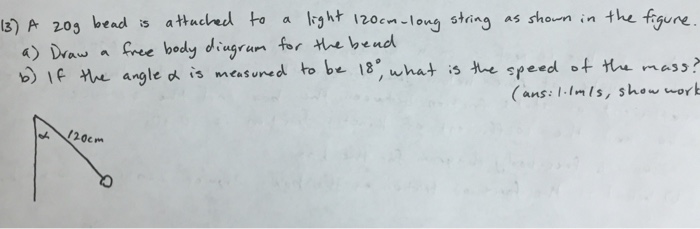 13) A 20g bead is attached to a light 120cm-long string as shown in the figure.
a) Draw a free body diagram for the bead
b) If the angle α is measured to be 18°, what is the speed of the mass?
(ans: 1.1m/s, show work
α 120cm